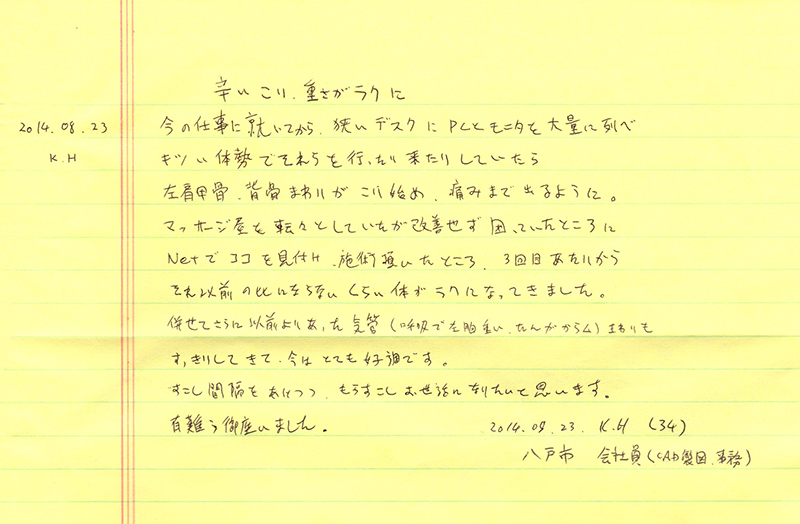 辛い こり、重さがラクに
2014.08.23
K.H
今の仕事に就いてから、狭いデスクにPCとモニタを大量に列べ
キツい体勢でそれらを行ったり来たりしていたら
左肩甲骨、背骨まわりがこり始め、痛みまで出るように。
マッサージ屋を転々としていたが改善せず困っていたところに
Netでココを見付け、施術頂いたところ、3回目あたりから
それ以前の比にならないくらい体がラクになってきました。
併せてさらに以前よりあった気管(呼吸でも胸重い、たんがからム)まわりも
すっきりしてきて、今はとても好調です。
すこし間隔をあけつつ、もうすこしお世話になりたいと思います。
有難う御座いました。
2014.08.23. K.H (34)
八戸市 会社員(CAD製図、事務)